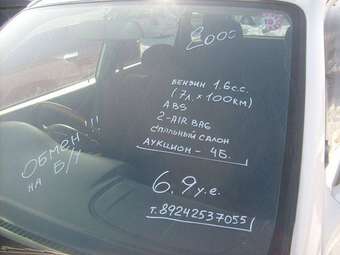 2000
БЕНЗИН 1.6сс.
(7л. × 100км)
ABS
2-AIR BAG
СПАЛЬНЫЙ САЛОН
АУКЦИОН - 4Б.
ОБМЕН!!!
НА Б/У
6.9 у.е.
т.89242537055